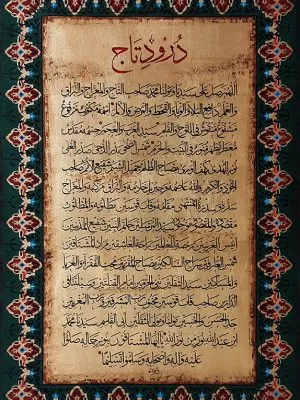 درود تاج
اللهم صل على سيدنا ومولانا محمد صاحب التاج والمعراج والبراق
والعلم دافع البلاء والوباء والقحط والمرض والألم اسمه مكتوب مرفوع
مشفوع منقوش في اللوح والقلم سيد العرب والعجم جسمه مقدس
معطر مطهر منور في البيت والحرم شمس الضحى بدر الدجى صدر العلى
نور الهدى كهف الورى مصباح الظلم جميل الشيم شفيع الأمم صاحب
الجود والكرم والله عاصمه وجبريل خادمه والبراق مركبه والمعراج
سفره وسدرة المنتهى مقامه وقاب قوسين مطلوبه والمطلوب
مقصوده والمقصود موجوده سيد المرسلين خاتم النبيين شفيع المذنبين
أنيس الغريبين رحمة للعالمين راحة العاشقين مراد المشتاقين
شمس العارفين سراج السالكين مصباح المقربين محب الفقراء والغرباء
والمساكين سيد الثقلين نبي الحرمين إمام القبلتين وسيلتنا في
الدارين صاحب قاب قوسين محبوب رب المشرقين ورب المغربين
جد الحسن والحسين مولانا ومولى الثقلين أبي القاسم سيدنا محمد
ابن عبد الله نور من نور الله يا أيها المشتاقون بنور جماله صلوا
عليه وآله وأصحابه وسلموا تسليما